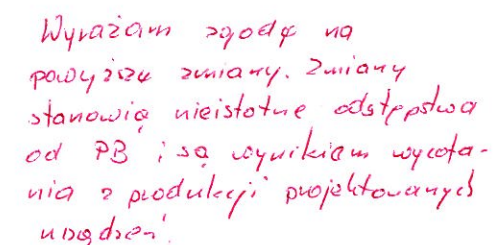 Wyrażam zgodę na
powyższe zmiany. Zmiany
stanowią nieistotne odstępstwa
od PB i są wynikiem wycofa-
nia z produkcji projektowanych
urządzeń.